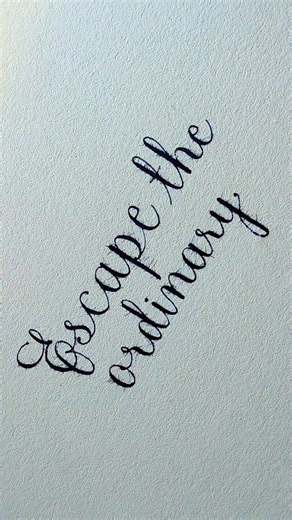 Escape the
ordinary